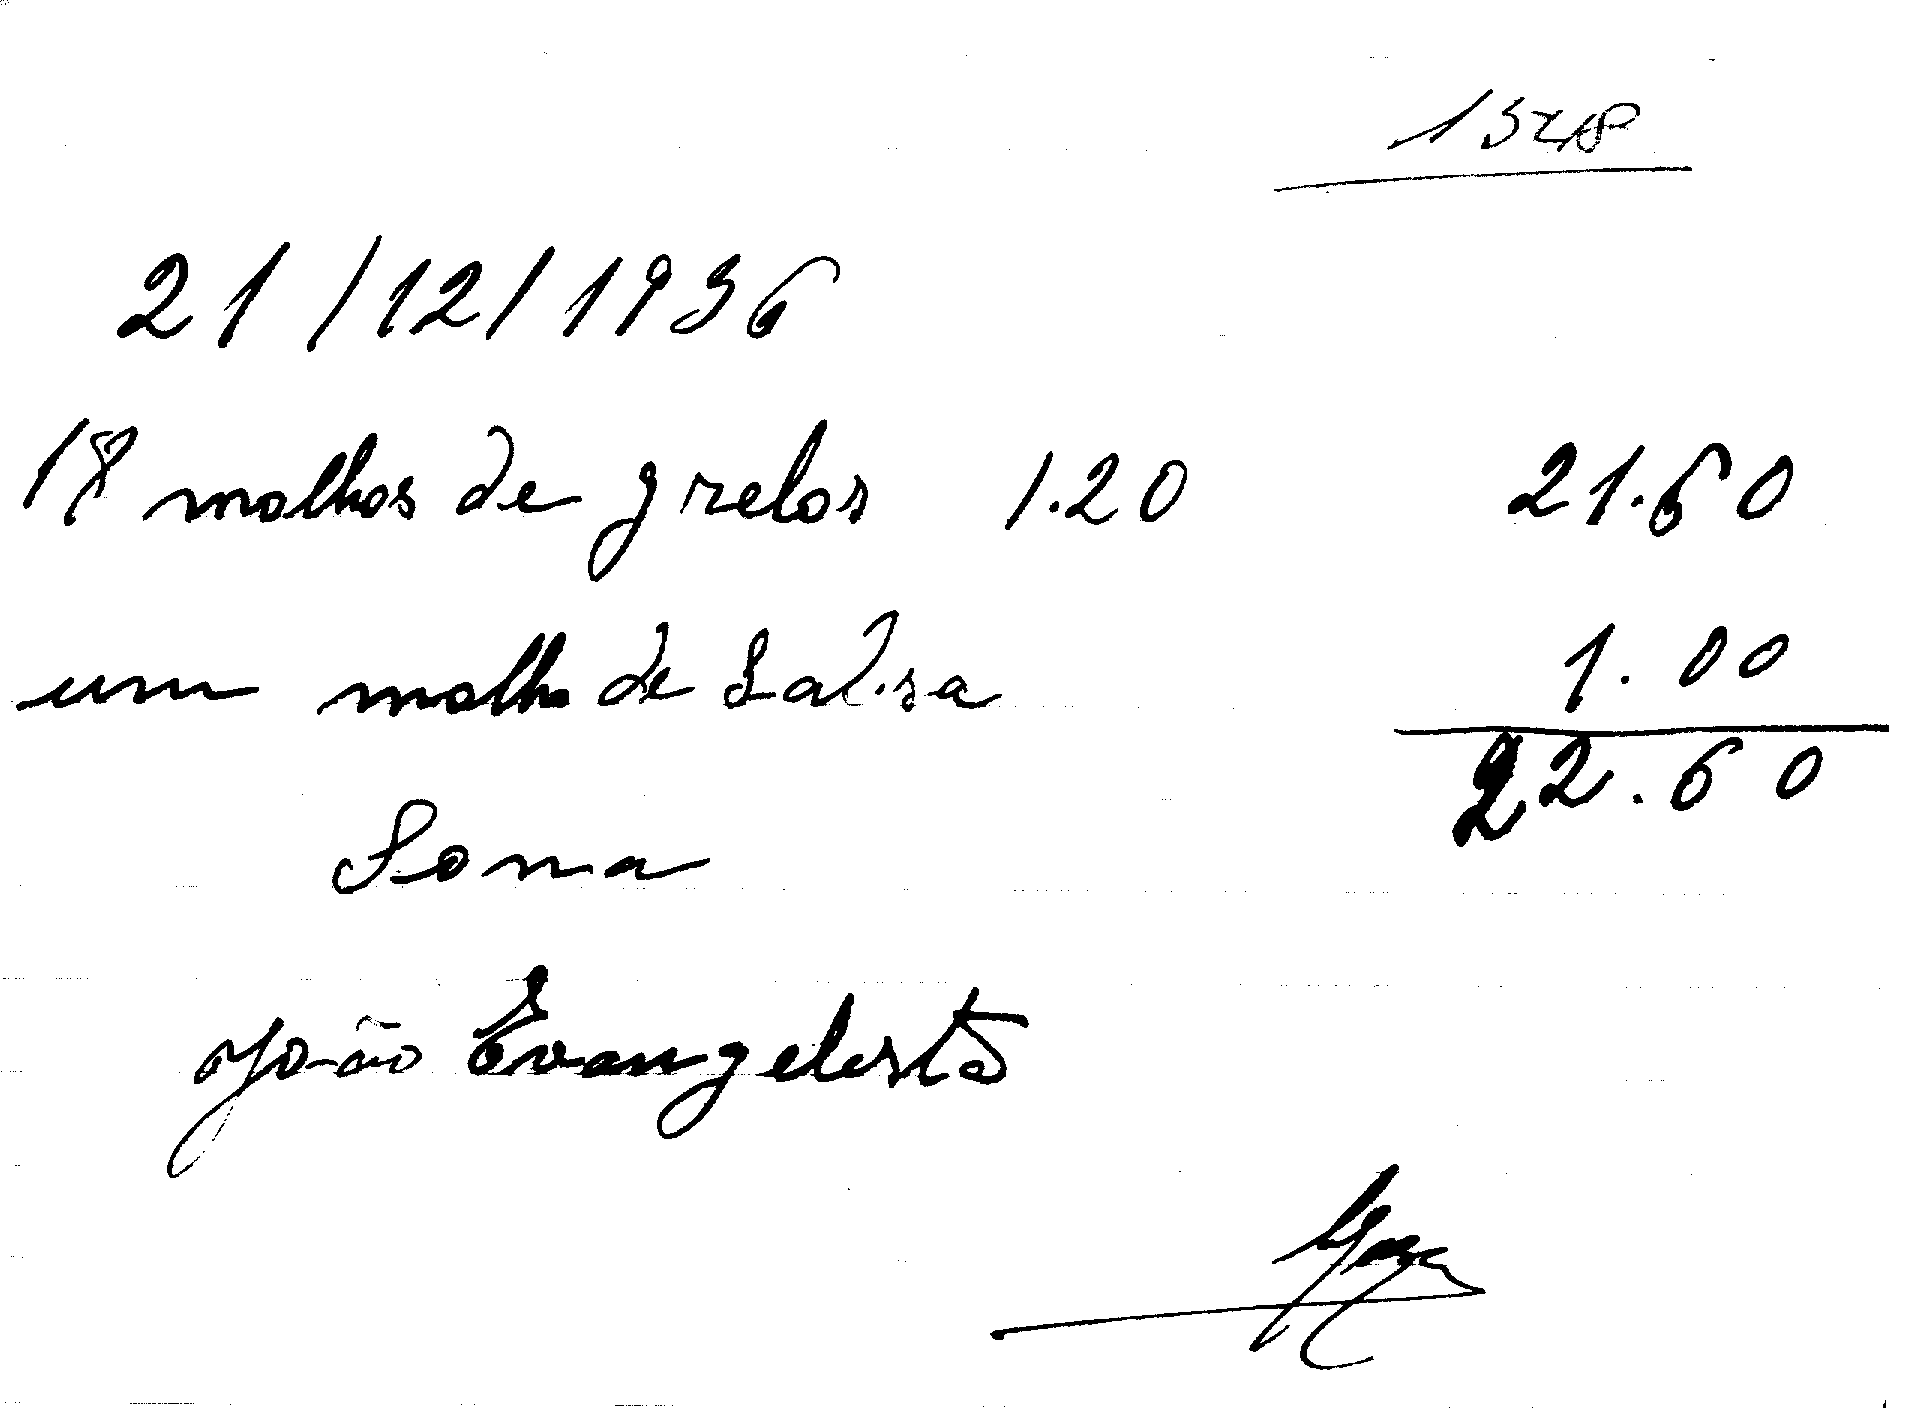 21/12/1936
18 molhos de grelos 1.20 21.60
um molho de Salsa 1.00
22.60
Soma
João Evangelista